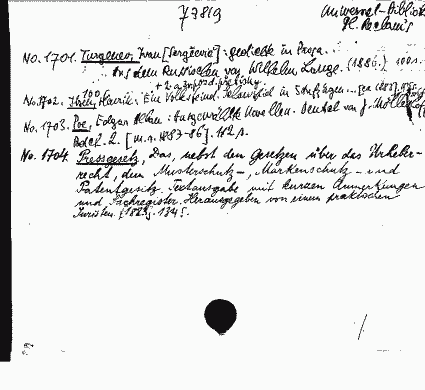 77819
Universal-Bibliot
Ph. Reclam's
No. 1701. Turgenev, Iwan [Sergěevič]: Gedichte in Prosa.
Aus dem Russischen von Wilhelm Lange. [1886.] 100 S.
No. 1702. Ibsen, Henrik: Ein Volksfeind. Schauspiel in
No. 1703. Poe, Edgar Allan: Ausgewählte Novellen. Deutsch von J. Möllenhof
Bdch. 2. [u. a. 1883-86]. 112 S.
No. 1704. Pressgesetz, Das, nebst den Gesetzen über das Urheber-
recht, den Musterschutz-, Markenschutz- und
Patentgesetz. Textausgabe mit kurzen Anmerkungen
und Sachregister. Herausgegeben von einem praktischen
Juristen. [1883]. 134 S.